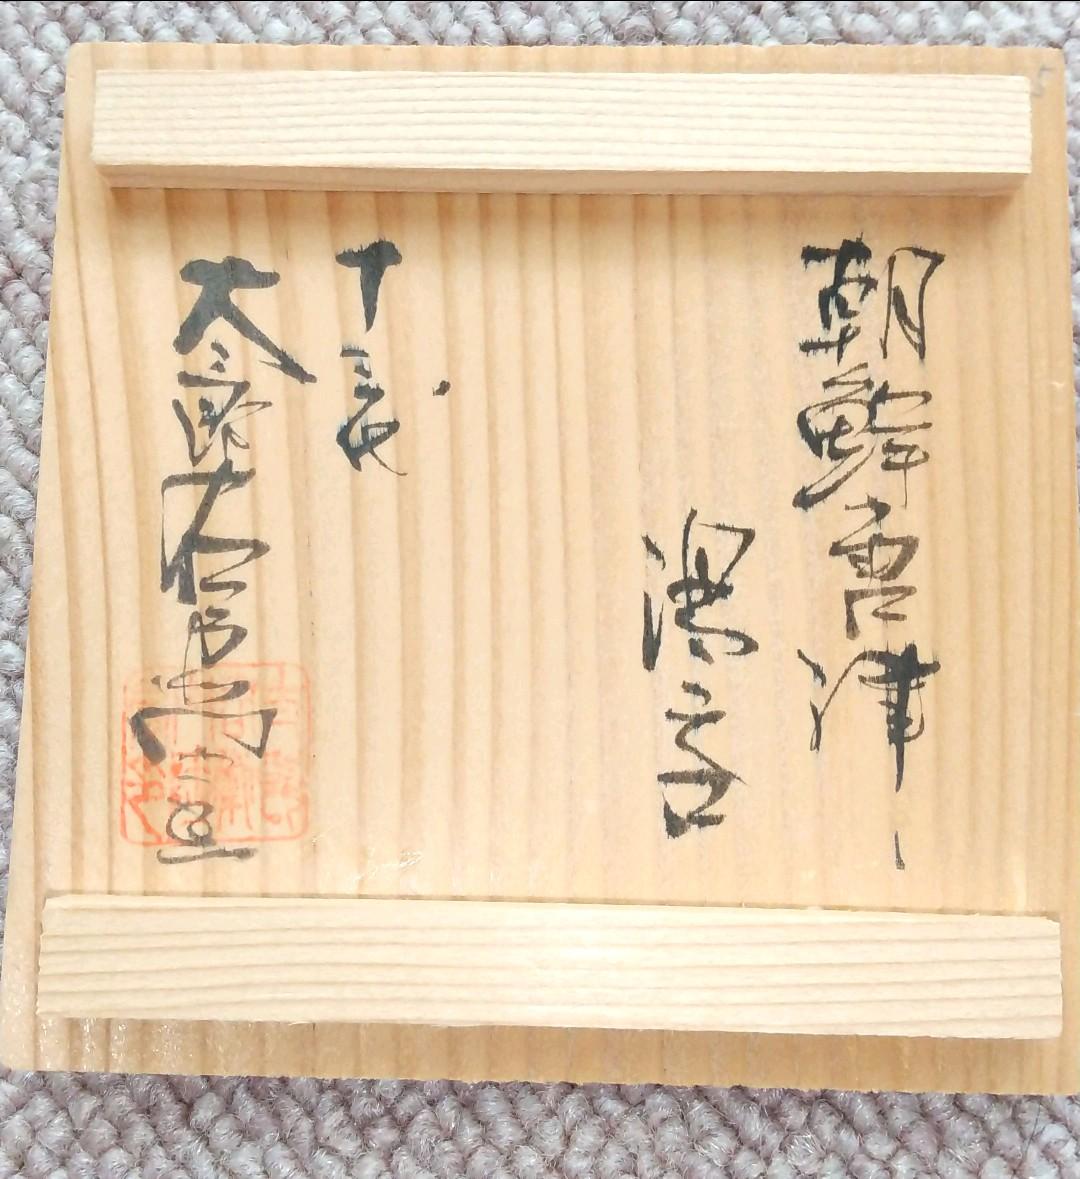 朝鮮唐津
湯呑
十三代
太郎右衛門